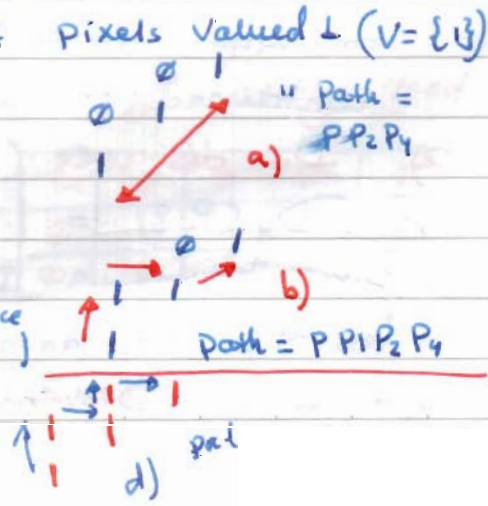 pixels valued 1 (V = {1})
Ø 1
Ø 1 " Path =
P P2 P4
1 a)
Ø 1
1 1 b)
1 path = P P1 P2 P4
1 1
1 1
1 d)